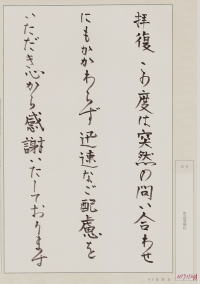 拝復 この度は突然の問い合わせ
にもかかわらず迅速なご配慮を
いただき心から感謝いたしております